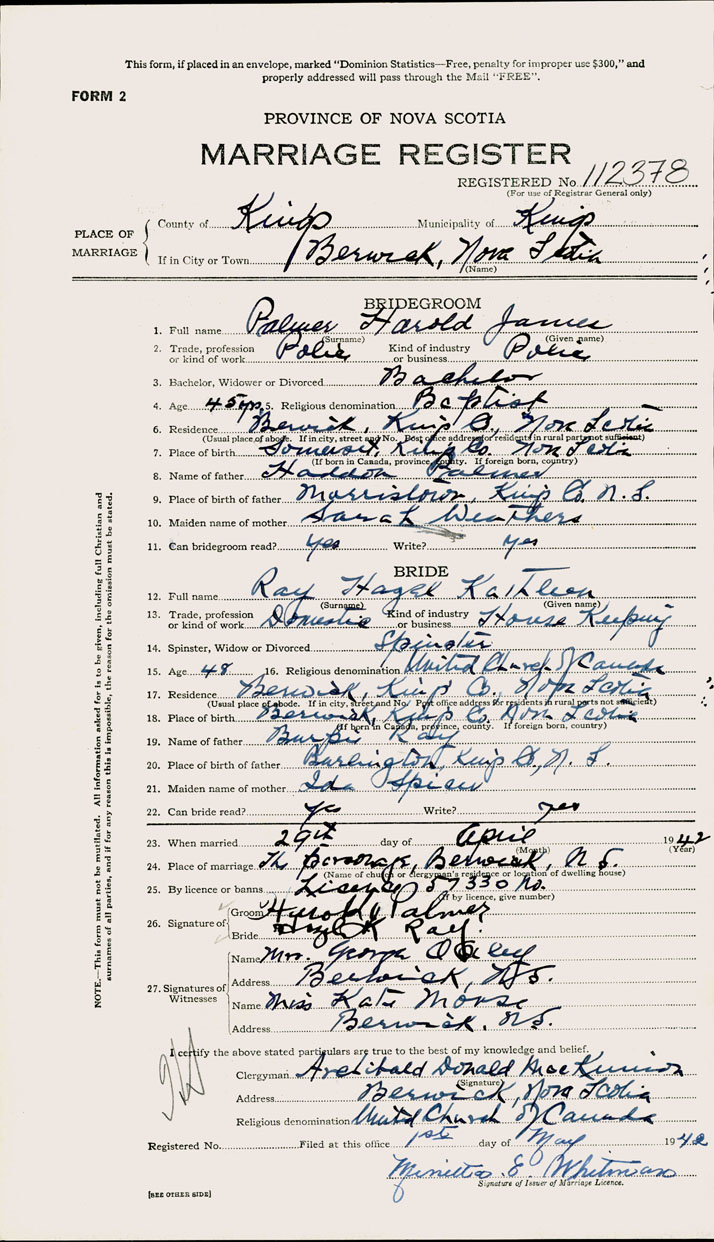 This form, if placed in an envelope, marked "Dominion Statistics—Free, penalty for improper use $300," and
properly addressed will pass through the Mail "FREE".
FORM 2
PROVINCE OF NOVA SCOTIA
MARRIAGE REGISTER
REGISTERED No. 112378
(For use of Registrar General only)
PLACE OF MARRIAGE
County of Kings Municipality of Kings
If in City or Town Berwick, Nova Scotia
(Name)
BRIDEGROOM
1. Full name Palmer Harold James
(Surname) (Given name)
2. Trade, profession or kind of work Police Kind of industry or business Police
3. Bachelor, Widower or Divorced Bachelor
4. Age 45 yrs. 5. Religious denomination Baptist
6. Residence Berwick, Kings Co., Nova Scotia
(Usual place of abode. If in city, street and No. Post office address for residents in rural parts not sufficient)
7. Place of birth Somerset, Kings Co. Nova Scotia
(If born in Canada, province, county. If foreign born, country)
8. Name of father Haddon Palmer
9. Place of birth of father Morristown, Kings Co. N.S.
10. Maiden name of mother Sarah Weathers
11. Can bridegroom read? yes Write? yes
BRIDE
12. Full name Ray Hazel Kathleen
(Surname) (Given name)
13. Trade, profession or kind of work Domestic Kind of industry or business House Keeping
14. Spinster, Widow or Divorced Spinster
15. Age 48 16. Religious denomination United Church of Canada
17. Residence Berwick, Kings Co., Nova Scotia
(Usual place of abode. If in city, street and No. Post office address for residents in rural parts not sufficient)
18. Place of birth Berwick, Kings Co. Nova Scotia
(If born in Canada, province, county. If foreign born, country)
19. Name of father Burpee Ray
20. Place of birth of father Burlington, Kings Co., N.S.
21. Maiden name of mother Ida Spicer
22. Can bride read? yes Write? yes
23. When married 29th day of April 1942
(Month) (Year)
24. Place of marriage The Parsonage, Berwick, N.S.
(Name of church or clergyman's residence or location of dwelling house)
25. By licence or banns Licence 57330 No.
(If by licence, give number)
26. Signature of
Groom Harold J Palmer
Bride Hazel K Ray.
27. Signatures of Witnesses
Name Mrs. George
Address Berwick, N.S.
Name Miss Kate Morse
Address Berwick, N.S.
I certify the above stated particulars are true to the best of my knowledge and belief.
Clergyman Archibald Donald MacKinnon
(Signature)
Address Berwick, Nova Scotia
Religious denomination United Church of Canada
Registered No. Filed at this office 1st day of May 1942
E. Whitman
Signature of Issuer of Marriage Licence.
[SEE OTHER SIDE]
NOTE.—This form must not be mutilated. All information asked for is to be given, including full Christian and
surnames of all parties, and if for any reason this is impossible, the reason for the omission must be stated.